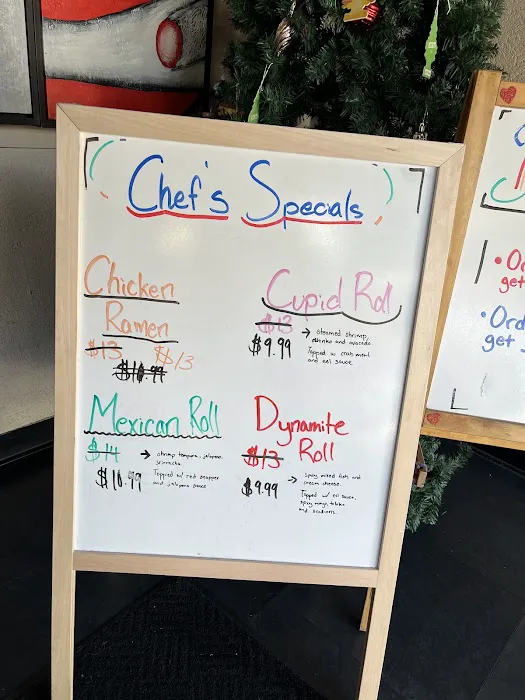 Chef's Specials
Chicken
Ramen
$13 $13
$10.99
Cupid Roll
$13
$9.99
→ steamed shrimp,
and avocado
Topped w/ crab meat
and eel sauce
Mexican Roll
$14
$10.99
→ shrimp tempura, jalapeno,
sriracha.
Topped w/ red snapper
and jalapeno sauce
Dynamite
Roll
$13
$9.99
→ spicy mixed fish and
cream cheese.
Topped w/ eel sauce,
spicy mayo,
and scallions.
• Or
get
• Ord
get